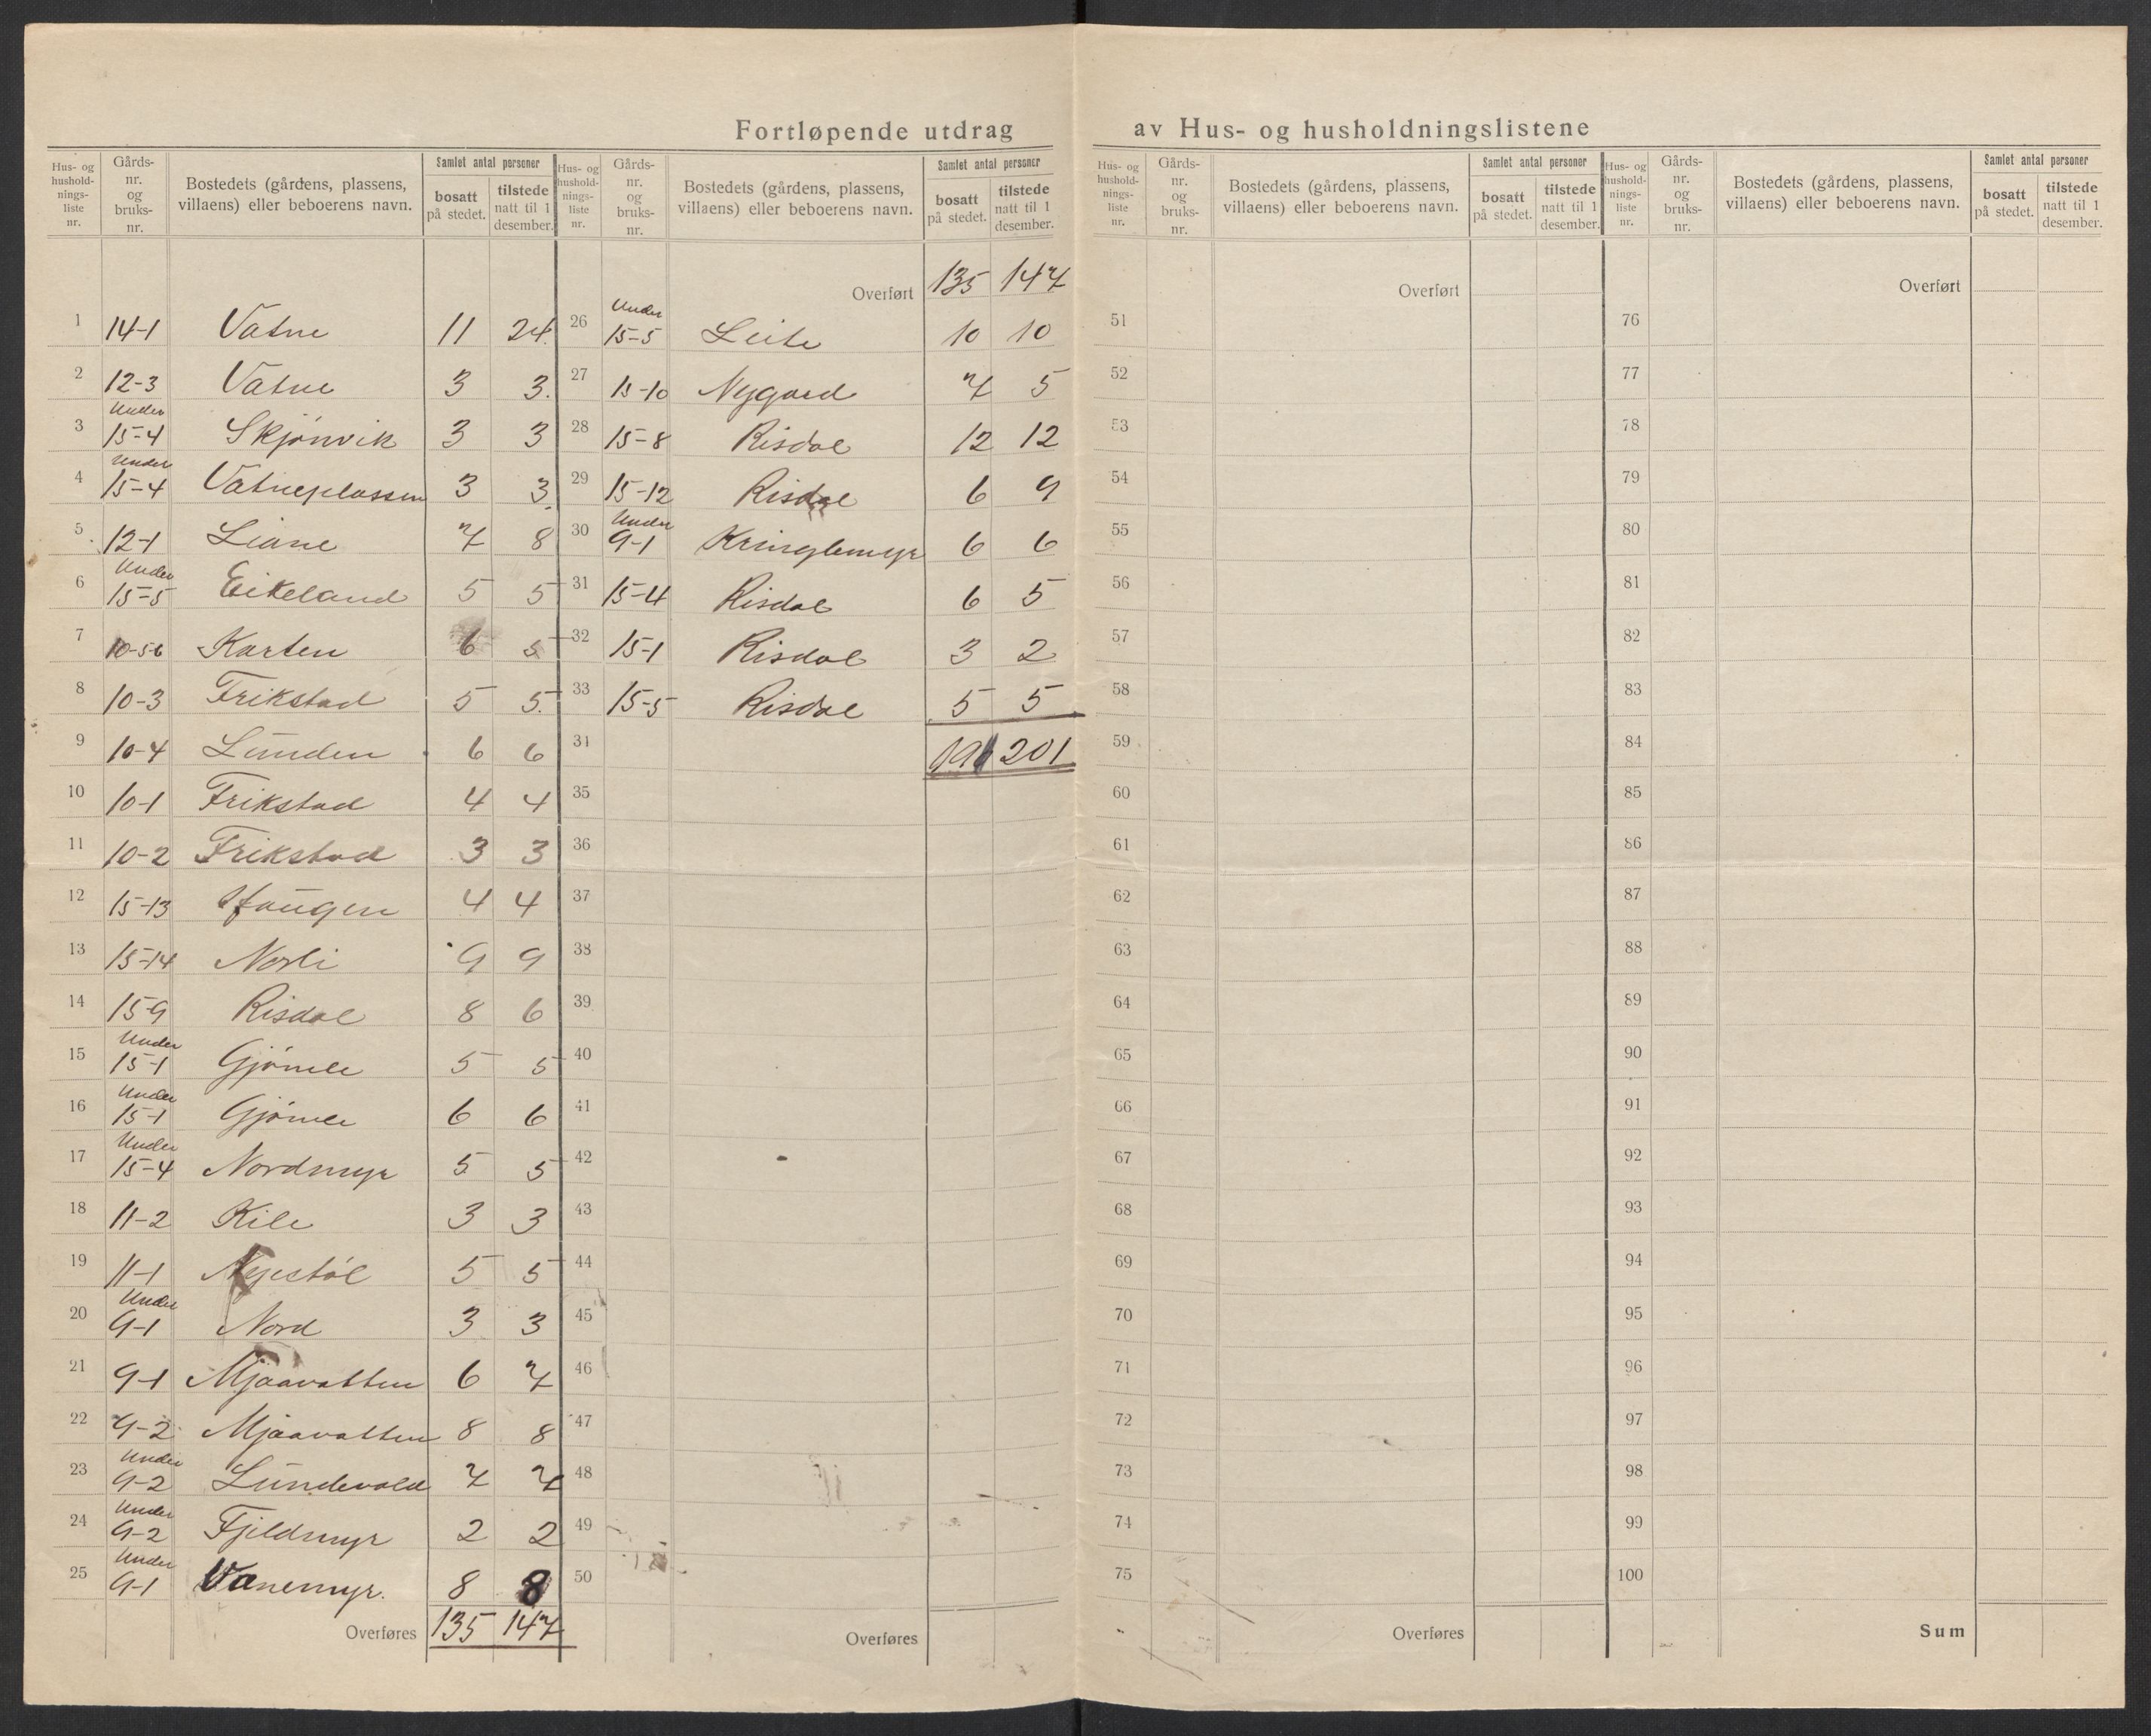 Fortløpende utdrag av Hus- og husholdningslistene
Hus- og hushold-nings-liste nr. Gårds-nr. og bruks-nr. Bostedets (gårdens, plassens, villaens) eller beboerens navn. Samlet antal personer bosatt på stedet. tilstede natt til 1 desember.
1 14-1 Vatne 11 24
2 12-3 Vatne 3 3
3 Under 15-4 Skjónvik 3 3
4 Under 15-4 Vatneplassen 3 3
5 12-1 Liane 7 8
6 Under 15-5 Eikeland 5 5
7 10-5-6 Karten 6 5
8 10-3 Frikstad 5 5
9 10-4 Lunden 6 6
10 10-1 Frikstad 4 4
11 10-2 Frikstad 3 3
12 15-13 Haugen 4 4
13 15-14 Norli 9 9
14 15-9 Risdal 8 6
15 Under 15-1 Gjómle 5 5
16 Under 15-1 Gjómle 6 6
17 Under 15-4 Nordmyr 5 5
18 11-2 Kile 3 3
19 11-1 Nyestól 5 5
20 Under 9-1 Nord 3 3
21 9-1 Mjaavatten 6 7
22 9-2 Mjaavatten 8 8
23 Under 9-2 Lundevold 7 7
24 Under 9-2 Fjeldmyr 2 2
25 Under 9-1 Vanemyr. 8 8
Overføres 135 147
Hus- og hushold-nings-liste nr. Gårds-nr. og bruks-nr. Bostedets (gårdens, plassens, villaens) eller beboerens navn. Samlet antal personer bosatt på stedet. tilstede natt til 1 desember.
Overført 135 147
26 Under 15-5 Leite 10 10
27 15-10 Nygaard 7 5
28 15-8 Risdal 12 12
29 15-12 Risdal 6 9
30 Under 9-1 Kringlemyr 6 6
31 15-4 Risdal 6 5
32 15-1 Risdal 3 2
33 15-5 Risdal 5 5
34 201
35
36
37
38
39
40
41
42
43
44
45
46
47
48
49
50
Overføres
Hus- og hushold-nings-liste nr. Gårds-nr. og bruks-nr. Bostedets (gårdens, plassens, villaens) eller beboerens navn. Samlet antal personer bosatt på stedet. tilstede natt til 1 desember.
Overført
51
52
53
54
55
56
57
58
59
60
61
62
63
64
65
66
67
68
69
70
71
72
73
74
75
Overføres
Hus- og hushold-nings-liste nr. Gårds-nr. og bruks-nr. Bostedets (gårdens, plassens, villaens) eller beboerens navn. Samlet antal personer bosatt på stedet. tilstede natt til 1 desember.
Overført
76
77
78
79
80
81
82
83
84
85
86
87
88
89
90
91
92
93
94
95
96
97
98
99
100
Sum